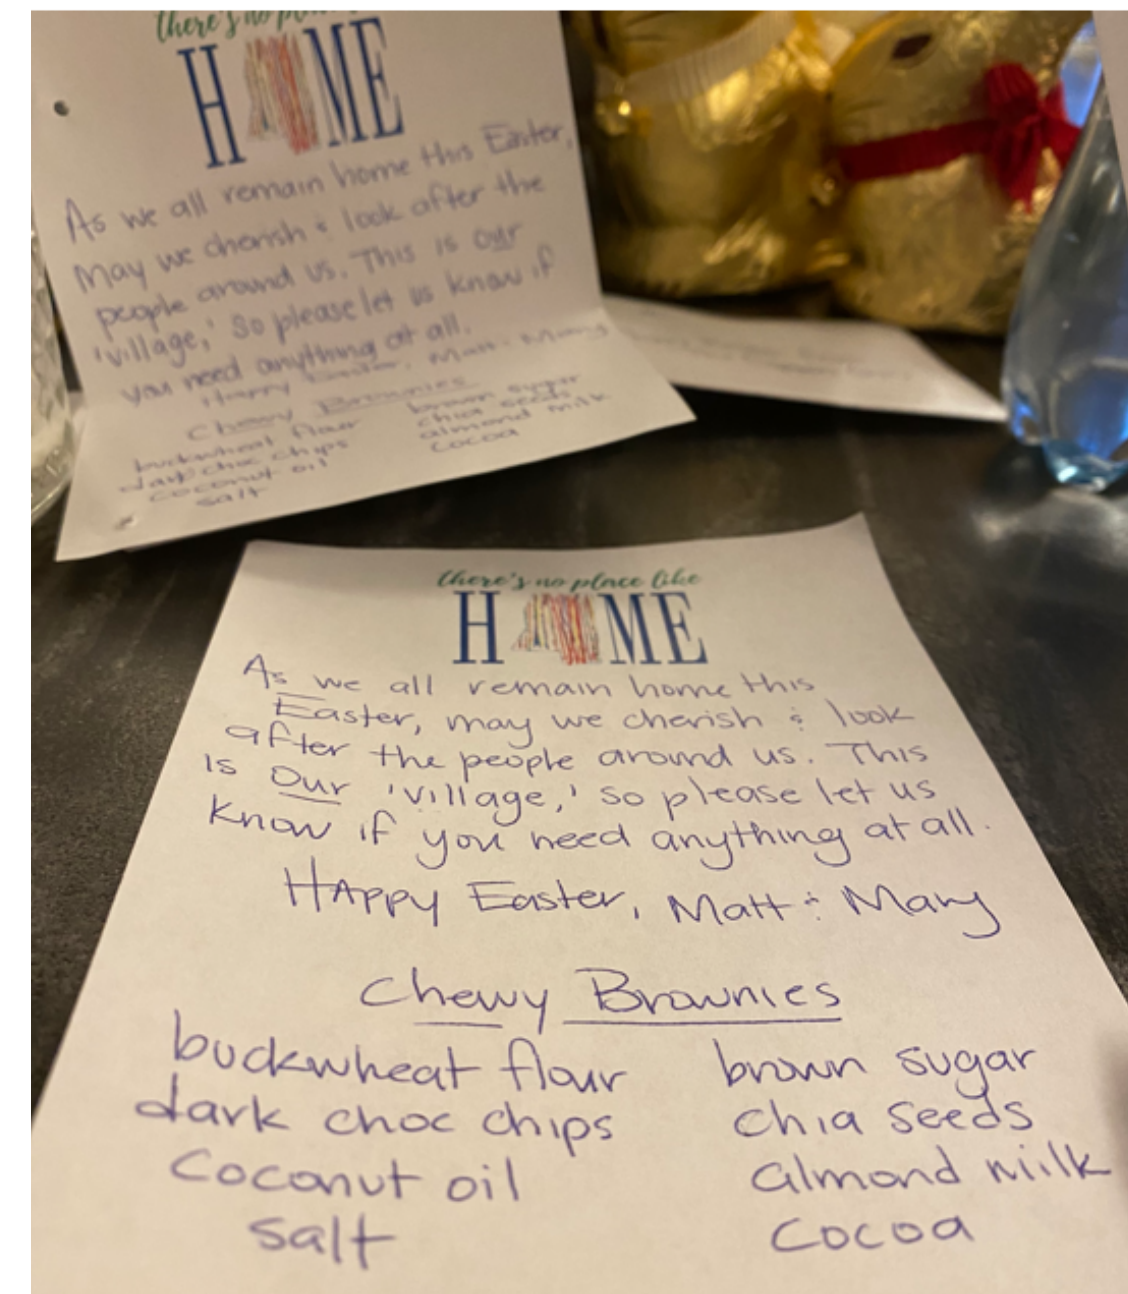 there's no
HOME
As we all remain home this Easter,
may we cherish & look after the
people around us. This is our
'village,' so please let us know if
you need anything at all.
Happy Easter, Matt & Mary
Chewy Brownies
buckwheat flour brown sugar
dark choc chips chia seeds
coconut oil almond milk
salt cocoa
there's no place like
HOME
As we all remain home this
Easter, may we cherish & look
after the people around us. This
is our 'village,' so please let us
know if you need anything at all.
HAppy Easter, Matt & Mary
Chewy Brownies
buckwheat flour brown sugar
dark choc chips chia seeds
coconut oil almond milk
salt cocoa